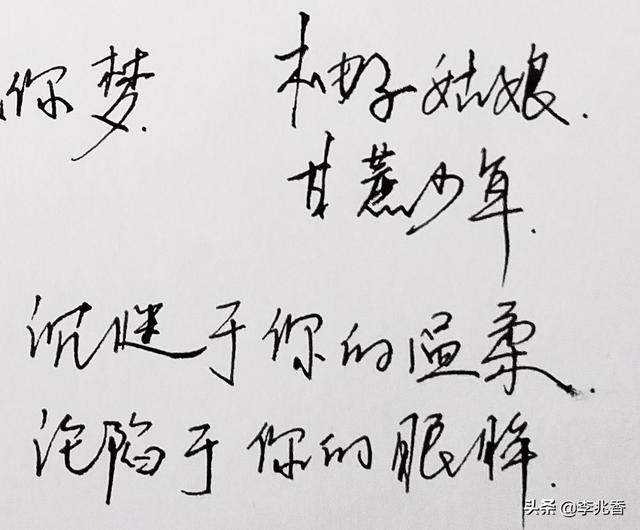 你梦.
柚子姑娘.
甘蔗少年.
沉迷于你的温柔.
沦陷于你的眼眸.
头条@李兆香